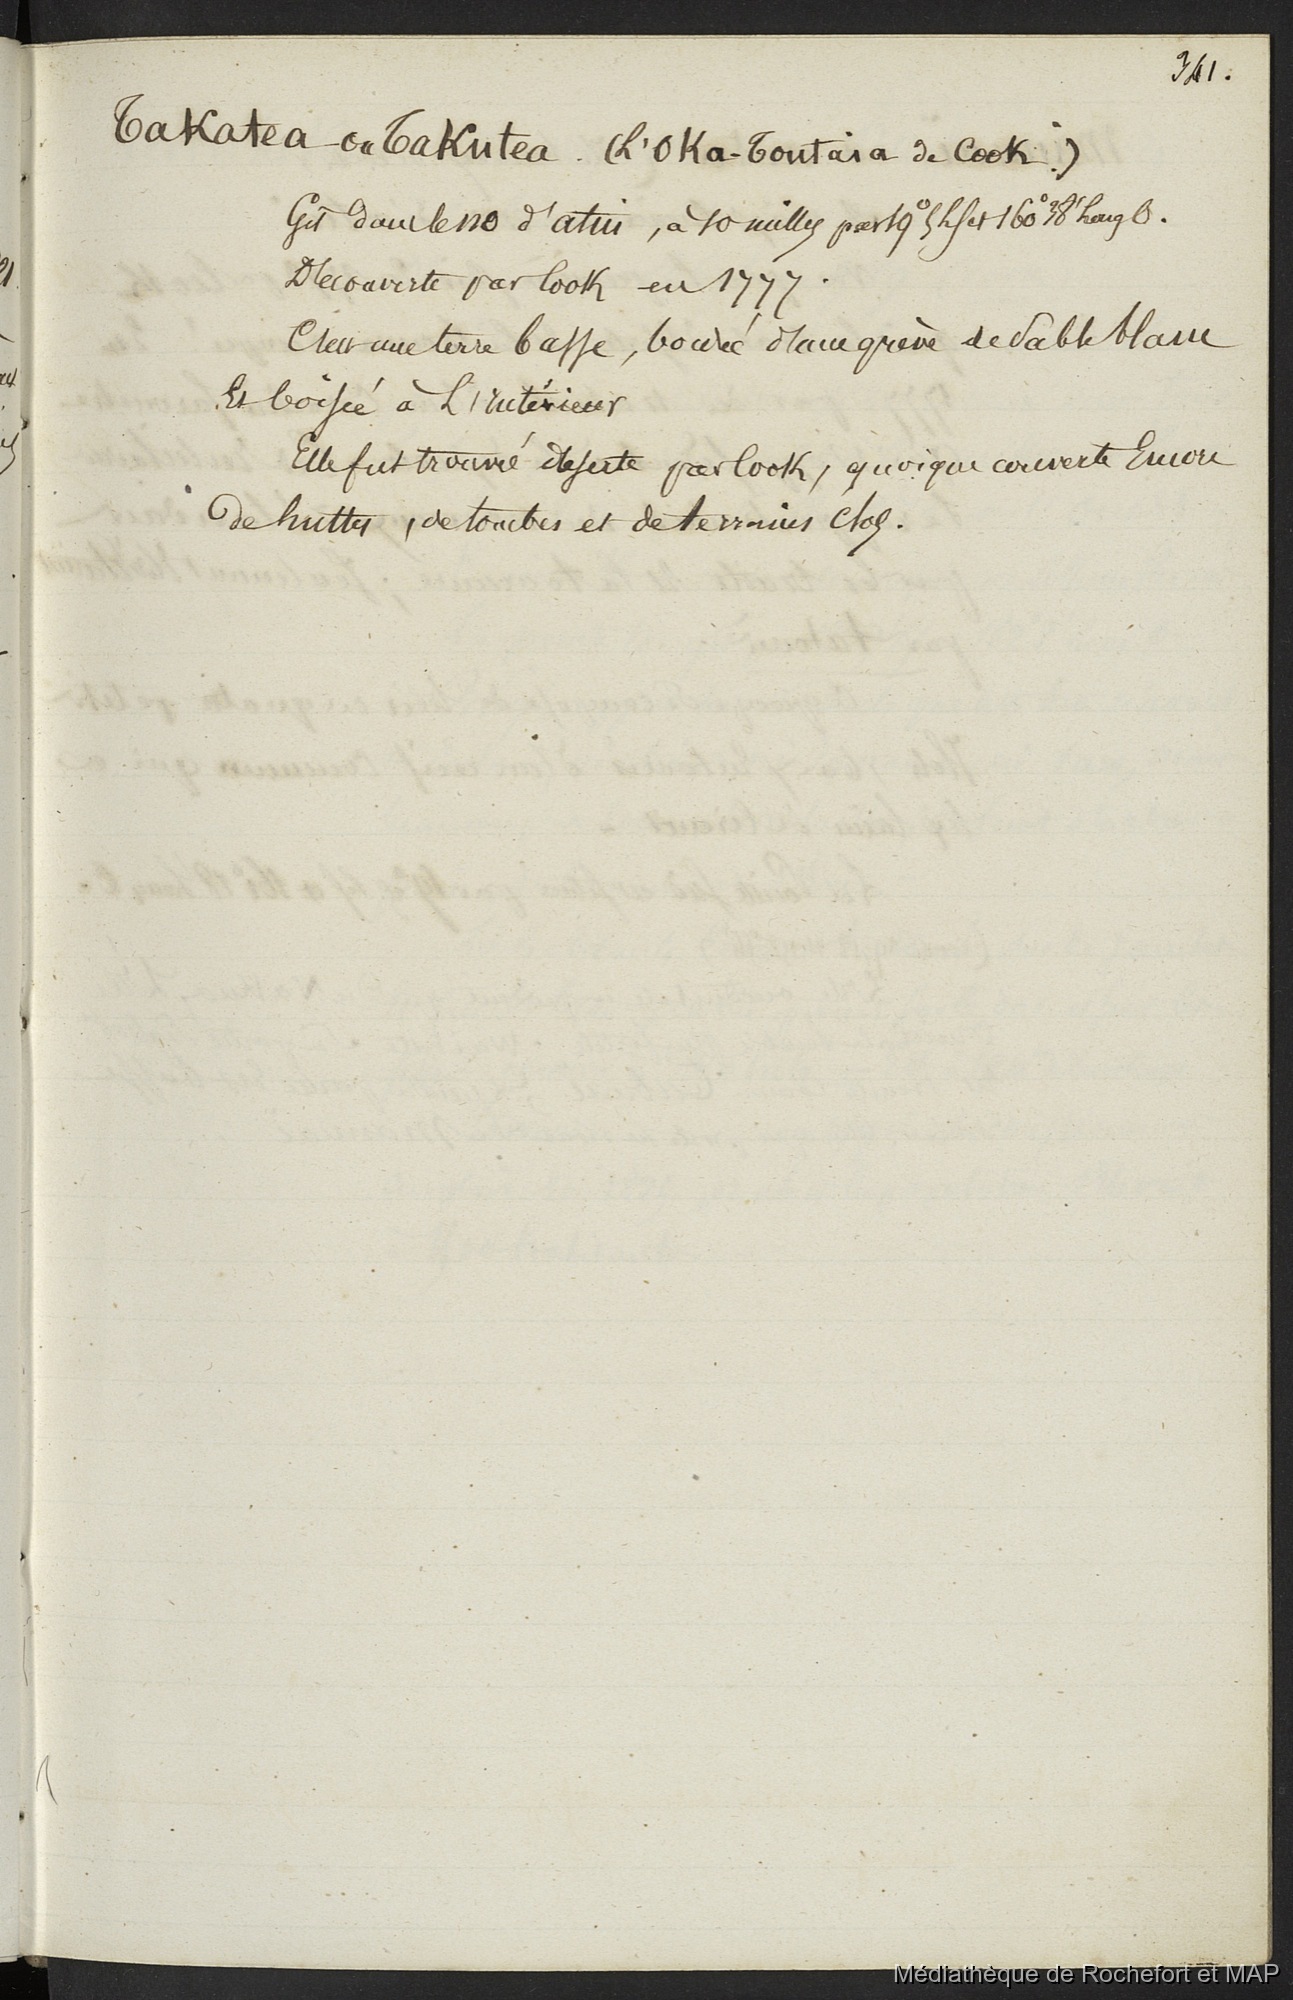 341.
Takatea ou Takutea. (L'Oka-Toutaia de Cook.)
Gît dans le NO d'atiu, à 10 milles par 19° S et 160° 38' Long O.
Découverte par Cook en 1777.
C'est une terre basse, bordée d'une grève de sable blanc
Et boisée à L'intérieur
Elle fut trouvée déserte par Cook, quoique couverte Encore
De huttes, de tombes et de terrains clos.
Médiathèque de Rochefort et MAP